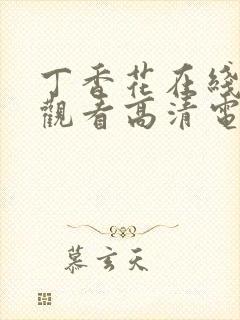 丁香花在綫
觀看高清電
慕玄天